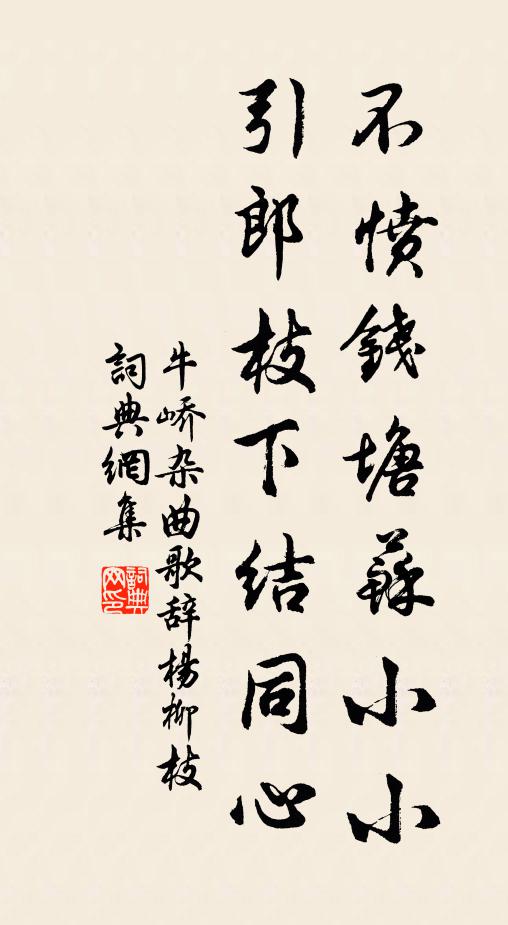 不憤錢塘蘇小小
引郎枝下結同心
牛峤杂曲歌辞楊柳枝
詞典網集
詞典
网印